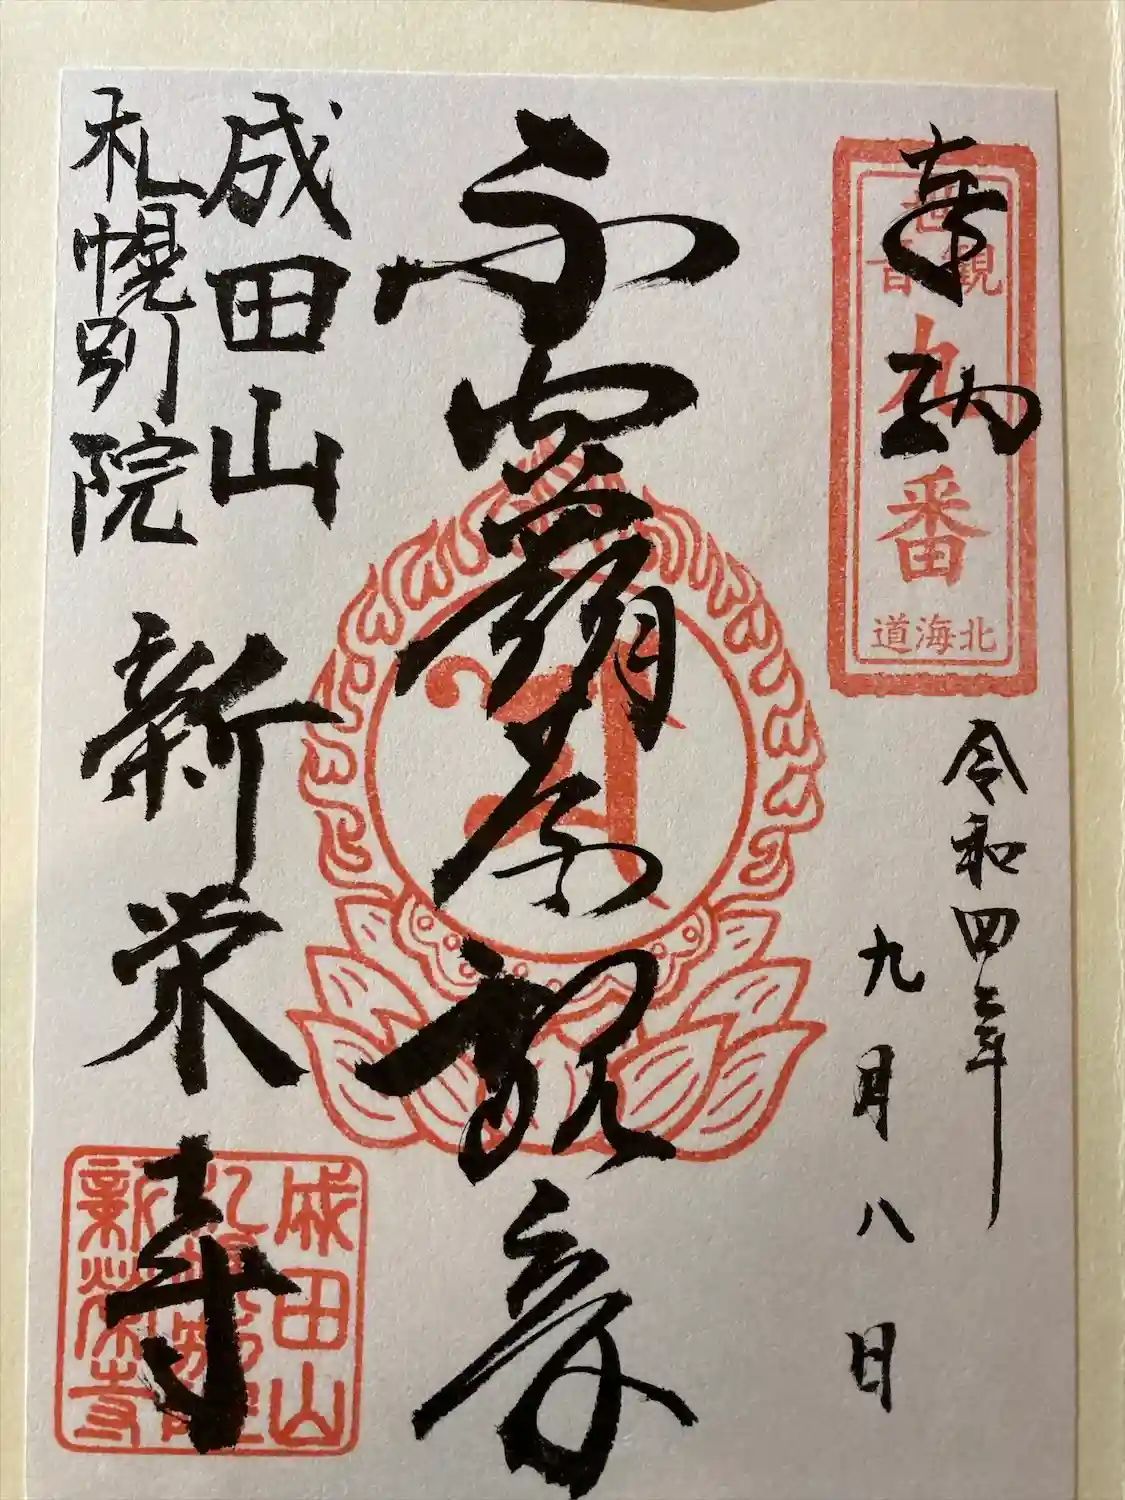 奉納
世音 観
九
番
北海道
令和四年
九月八日
不空羂索観音
成田山
札幌別院
新栄寺
成田山
札幌別院
新栄寺